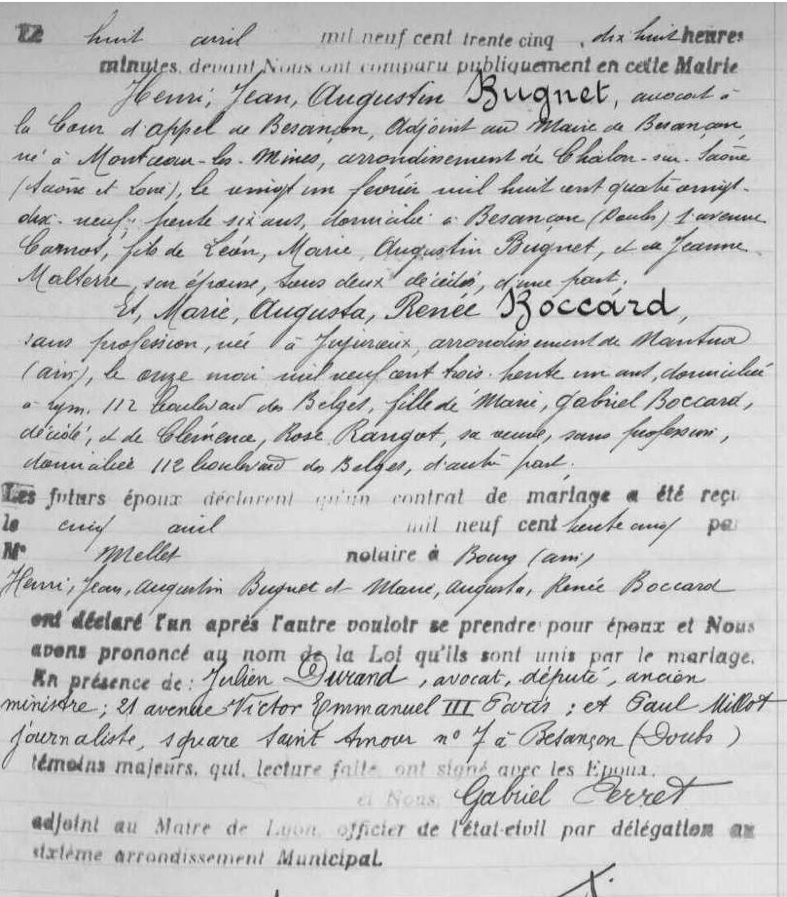 Le huit avril mil neuf cent trente cinq, dix huit heures
minutes, devant Nous ont comparu publiquement en cette Mairie
Henri, Jean, Augustin Bugnet, avocat à
la Cour d'appel de Besançon, Adjoint au Maire de Besançon,
né à Montceau-les-Mines, arrondissement de Chalon-sur-Saône
(Saône et Loire), le vingt un fevrier mil huit cent quatre vingt-
dix-neuf, trente six ans, domicilié à Besançon (Doubs) 1 avenue
Carnot, fils de Léon, Marie, Augustin Bugnet, et de Jeanne
Malterre, son épouse, tous deux décédés, d'une part;
Et, Marie, Augusta, Renée Boccard,
sans profession, née à Jujurieux, arrondissement de Nantua
(ain), le onze mai mil neuf cent trois, trente un ans, domiciliée
à Lyon, 112 boulevard des Belges, fille de Marie, Gabriel Boccard,
décédé, et de Clémence, Rose Rangot, sa veuve, sans profession,
domiciliée 112 boulevard des Belges, d'autre part.
Les futurs époux déclarent qu'un contrat de mariage a été reçu
le cinq avril mil neuf cent trente cinq pa
Me Mellet notaire à Bourg (ain)
Henri, Jean, Augustin Bugnet et Marie, Augusta, Renée Boccard
ont déclaré l'un après l'autre vouloir se prendre pour époux et Nous
avons prononcé au nom de la Loi qu'ils sont unis par le mariage.
En présence de: Julien Durand, avocat, député, ancien
ministre; 21 avenue Victor Emmanuel III Paris; et Paul Millot
journaliste, square Saint Amour n° 7 à Besançon (Doubs)
témoins majeurs, qui, lecture faite, ont signé avec les Epoux.
et Nous, Gabriel Perret
adjoint au Maire de Lyon, officier de l'état-civil par délégation au
sixième arrondissement Municipal.